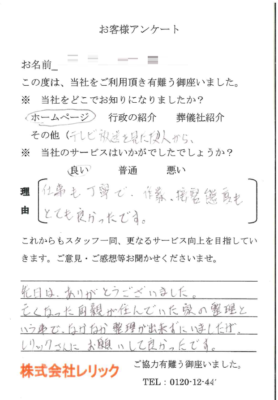 お客様アンケート
お名前
この度は、当社をご利用頂き有難う御座いました。
※ 当社をどこでお知りになりましたか?
ホームページ 行政の紹介 葬儀社紹介
その他(テレビ放送を見た友人から、
※ 当社のサービスはいかがでしたでしょうか?
良い 普通 悪い
理由
仕事も丁寧で、作業、態度も
とても良かったです。
これからもスタッフ一同、更なるサービス向上を目指してい
きます。ご意見・ご感想等お聞かせくださいませ。
先日は、ありがとうございました。
亡くなった両親が住んでいた家の整理と
いう事で、なかなか整理が出来ずにいましたが、
レリックさんにお願いして良かったです。
株式会社レリック
ご協力有難う御座いました。
TEL:0120-12-44